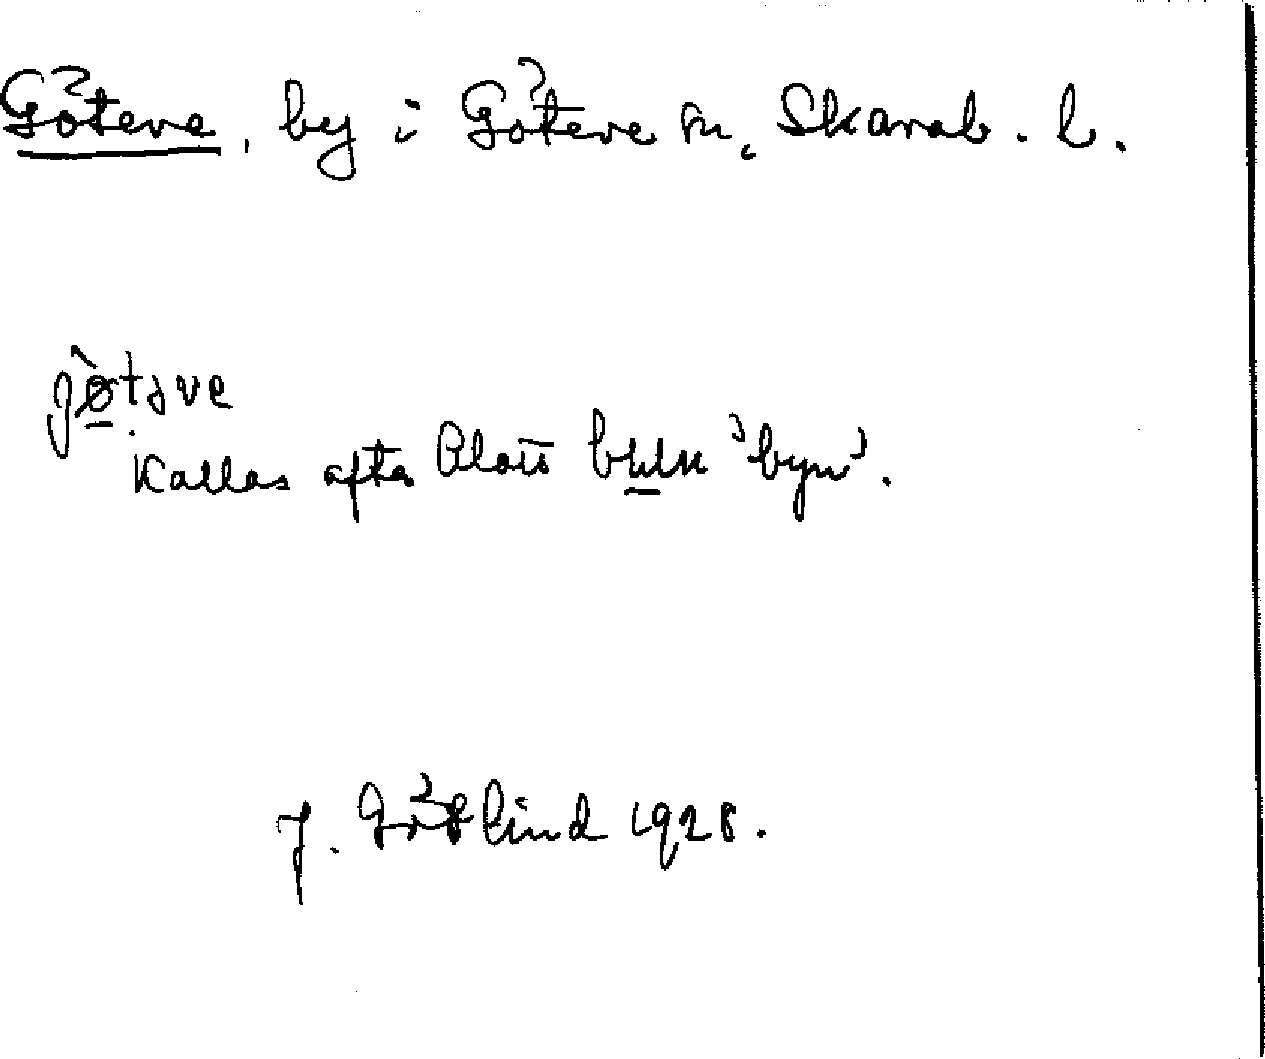 Göteve, by i Göteve sn, Skarab. l.
gøtave
Kallas ofta blott byn 'byn'.
J. Götlind 1928.